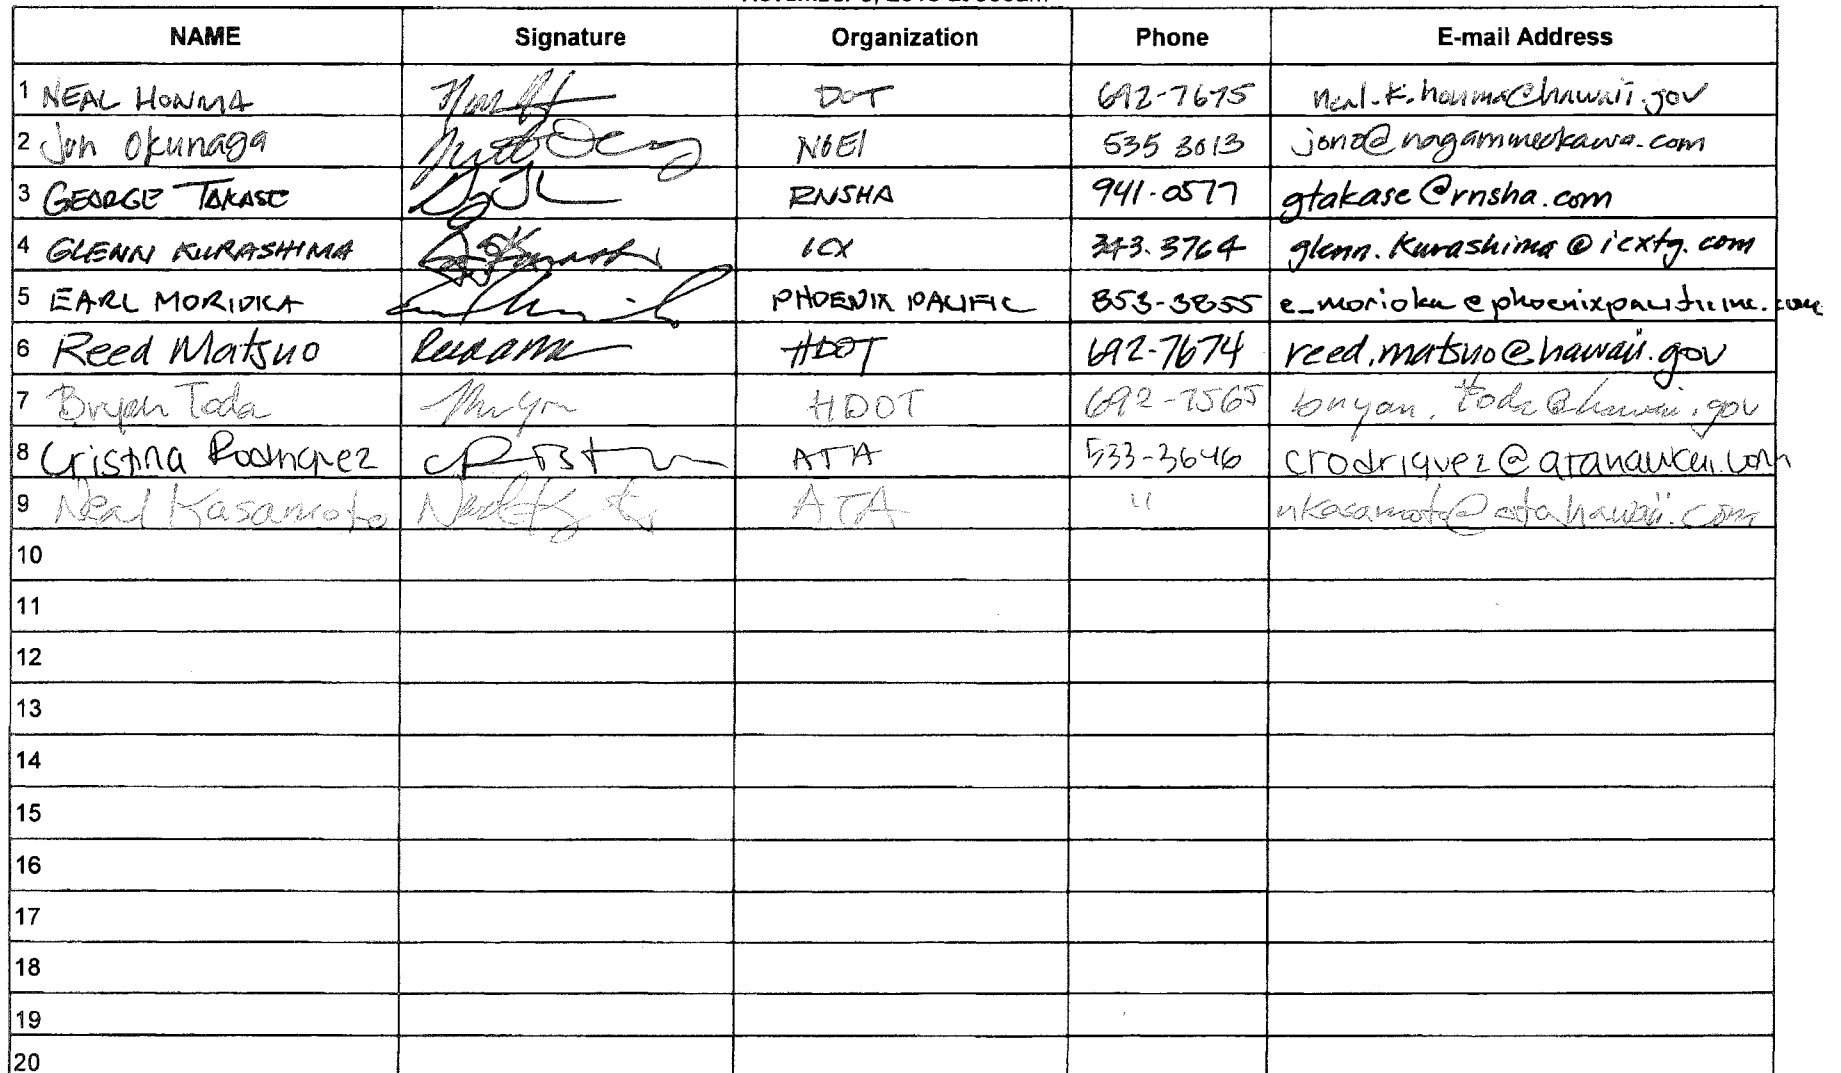 NAME Signature Organization Phone E-mail Address
1 NEAL HONMA DOT 692-7675 neal.k.honma@hawaii.gov
2 Jon Okunaga NOEI 535 3013
3 GEORGE TAKASE RNSHA 941-0577 gtakase@rnsha.com
4 GLENN KURASHIMA ICX 343.3764 glenn.kurashima@icxtg.com
5 EARL MORIOKA PHOENIX PACIFIC 853-3855 e_morioka@phoenixpacificinc.com
6 Reed Matsuo HDOT 692-7674 reed.matsuo@hawaii.gov
7 Bryan Toda HDOT 692-7565 bryan.toda@hawaii.gov
8 Cristina Rodriguez ATA 533-3646 crodriguez@atahawaii.com
9 Neal Kasamoto ATA " nkasamoto@atahawaii.com
10
11
12
13
14
15
16
17
18
19
20